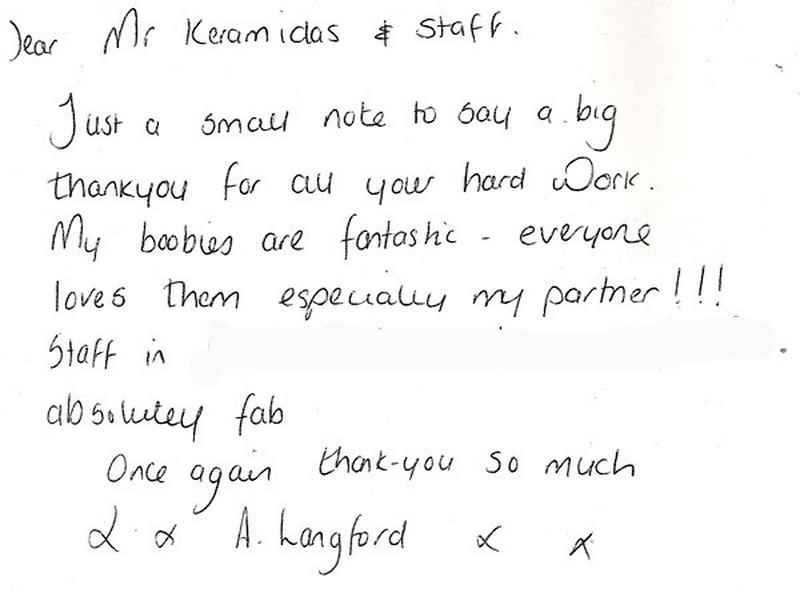 Dear Mr Keramidas & Staff.
Just a small note to say a big
thankyou for all your hard Work.
My boobies are fantastic - everyone
loves them especially my partner!!!
Staff in
absolutey fab
Once again thank-you so much
x x A. Langford x x